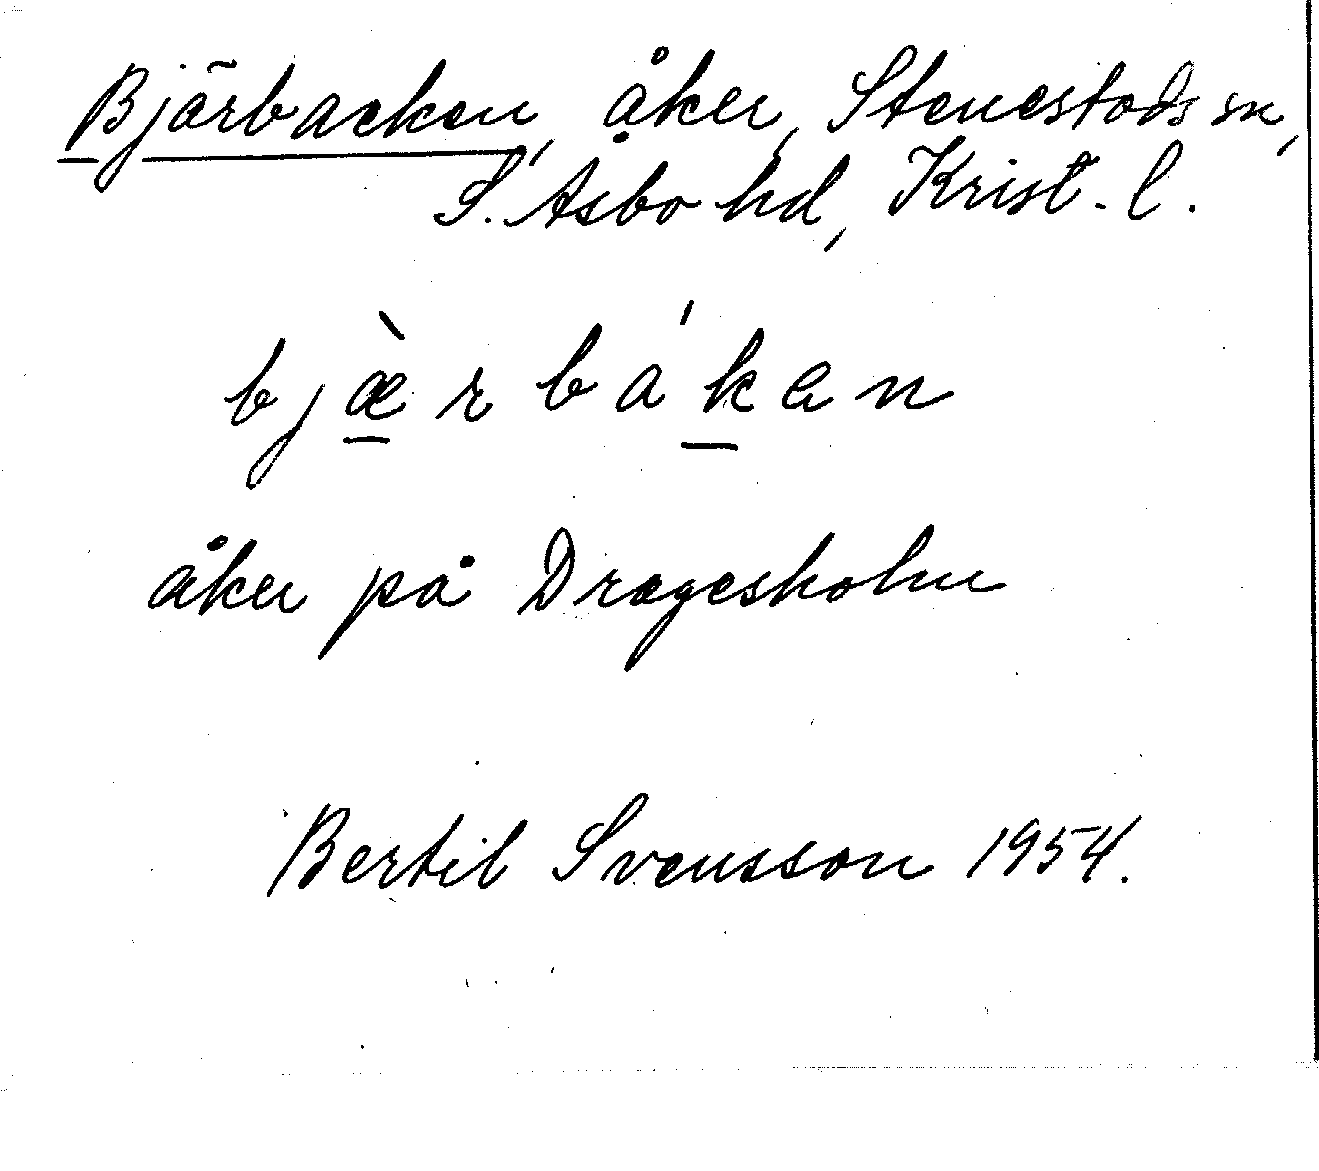 Bjärbacken, åker, Stenestads sn,
S. Åsbo hd, Krist. l.
bjæ̱̀rbáḵen
åker på Dragesholm
Bertil Svensson 1954.